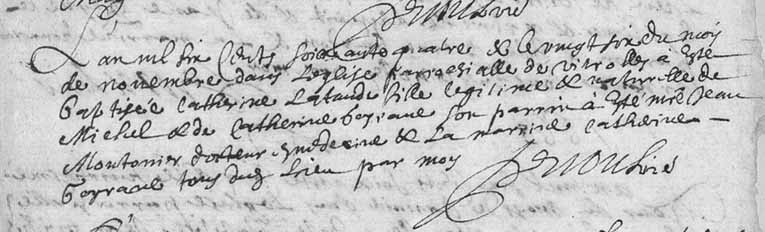 Lan mil six cents soixante quatre & le vingt six du mois
de novembre dans leglise parrochialle de vitrolles à esté
baptisée Catherine Lataude fille legitime & naturelle de
Michel & de Catherine Goyrane son parrin à esté mre Jean
Montonier docteur medecine & La marrine Catherine
Goyrane tous dud lieu par moy